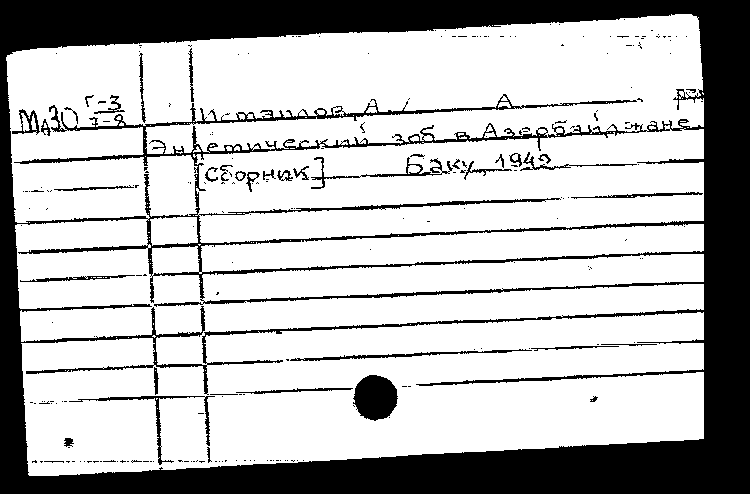 МдЗО Г-3/7-8 Исмаилов, А./ А
Эндемический зоб в Азербайджане.
[Сборник] Баку, 1942